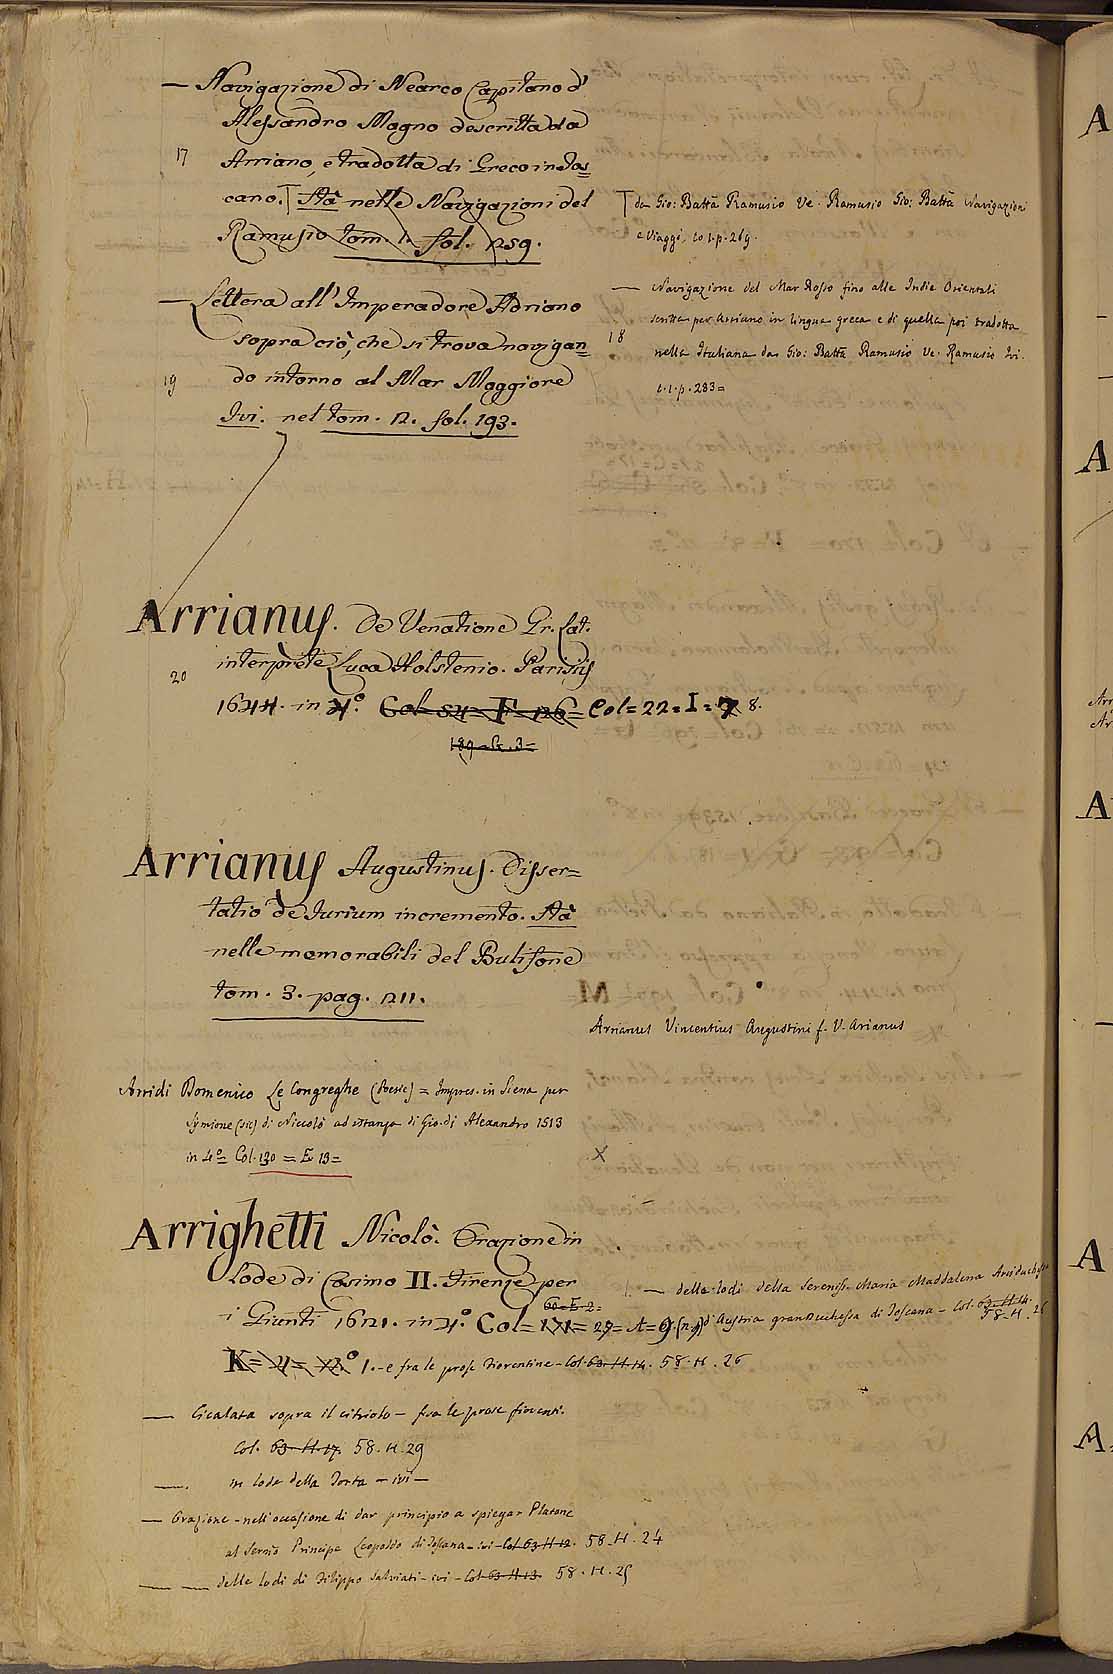 — Navigazione di Nearco Capitano d'
Alessandro Magno descritta da
17 Arriano, e tradotta di Greco in Tos=
cano. Stà nelle Navigazioni del
Ramusio tom. 1. fol. 259.
da Gio: Battã Ramusio Ve. Ramusio Gio: Battã Navigazioni
e Viaggi, to 1. p. 269.
— Lettera all' Imperadore Adriano
sopra ciò, che si trova navigan=
19 do intorno al Mar Maggiore
Ivi. nel tom. 2. fol. 193.
— Navigazione del Mar Rosso fino alle Indie Orientali
scritta per Arriano in lingua greca e di quella poi tradotta
18 nella Italiana da Gio: Battã Ramusio Ve. Ramusio Ivi.
t. 1. p. 283=
Arrianus. De Venatione Gr. Lat.
interprete Luca Holstenio. Parisiis
20
1644. in 4.º Col= 54= F= 126= Col= 22= I= 7 8.
189= G. 3=
Arrianus Augustinus. Disser=
tatio de Iurium incremento. Stà
nelle memorabili del Bulifone
tom. 3. pag. 211.
M
Arrianus Vincentius Augustini f. V. Arianus
Arridi Domenico Le Congreghe (Poesie) = Impres. in Siena per
Symione (sic) di Niccolò ad istanza di Gio. di Alexandro 1513
in 4º= Col. 130 = E 13=
X
Arrighetti Nicolò. Orazione in
lode di Cosimo II. Firenze per
i Giunti 1621. in 4.º Col= 171= 27= A= 9. (n. 9)
60= E 2=
K= 4= 12.º 1. - e fra le prose Fiorentine - Col. 63. H. 14. 58. H. 26
— delle lodi della Sereniss. Maria Maddalena Arciduchessa
d'Austria granduchessa di Toscana - Col. 63. H. 14.
58. H. 26
— Cicalata sopra il citriolo - fra le prose fiorenti.
Col. 63. H. 17. 58. H. 29
—. in lode della Torta - ivi -
— Orazione - nell'occasione di dar principio a spiegar Platone
al Sermo Principe Leopoldo di Toscana - ivi - Col 63 H 12. 58. H. 24
— — delle lodi di Filippo Salviati - ivi - Col 63 H 13. 58. H. 25